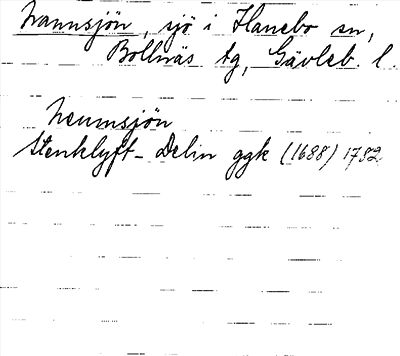 Nannsjön, sjö i Hanebo sn,
Bollnäs tg, Gävleb. l.
Neumsjön
Stenklyft-Delin ggk (1688) 1782